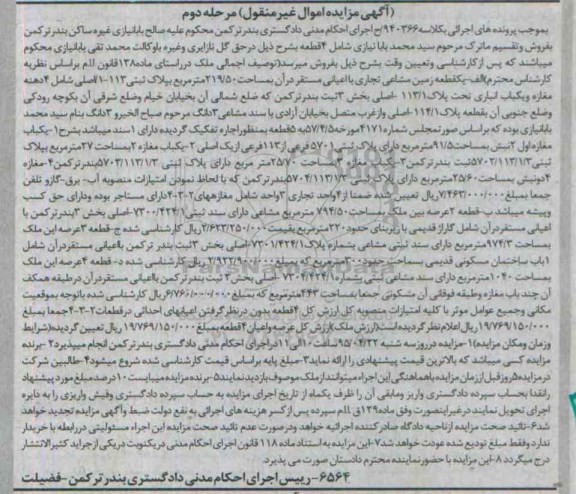 (آگهی مزایده اموال غیر منقول) مرحله دوم
بموجب پرونده های اجرائی بکلاسه ۹۴۰۳۶۶/ح اجرای احکام مدنی دادگستری بندر ترکمن محکوم علیه صالح بابانیازی غیره ساکن بندر ترکمن
بفروش وتقسیم ماترک مرحوم سید محمد بابا نیازی شامل ۴قطعه بشرح ذیل درحق گل نازابری وغیره باوکالت محمد تقی بابانیازی محکوم
میباشند که پس از کارشناسی وتعیین وقت بشرح ذیل بفروش میرسد(توصیف اجمالی ملک درراستای ماده۱۳۸قانون ا.م براساس نظریه
کارشناس محترم)الف-یکقطعه زمین مشاعی تجاری بااعیانی مستقر در آن بمساحت ۲۱۹/۵۰مترمربع بپلاک ثبتی ۱۱۳-۱اصلی شامل ۴دهنه
مغازه ویکباب انباری تحت پلاک ۱۱۳/۱-اصلی بخش ۳ثبت بندر ترکمن که ضلع شمالی آن بخیابان خیام وضلع شرقی آن بکوچه رودکی
وضلع جنوبی آن بقطعه پلاک ۱۱۴/۱-اصلی وازغرب متصل بخیابان آزادی با سند مشاعی ۳دانگ مرحوم صباح الخیرو ۳دانگ بنام سید محمد
بابانیازی بوده که براساس صورتمجلس شماره ۴۱۷۱مورخه ۵۷/۴/۵به ۵قطعه بمنظور اجاره تفکیک گردیده دارای ۱سند میباشد بشرح۱-یکباب
مغازه اول ۲نبش بمساحت۹۱/۵مترمربع دارای پلاک ثبتی ۵۷۰۱فرعی از ۱۱۳فرعی از یک اصلی ۲-یکباب مغازه ۲بمساحت ۲۷مترمربع بپلاک
ثبتی ۵۷۰۲/۱۱۳/۱/۳ثبت بندر ترکمن۳-یکباب مغازه ۳بمساحت ۲۵/۷۰متر مربع دارای پلاک ثبتی ۵۷۰۳/۱۱۳/۱/۳بندرترکمن۴-مغازه
۴دونبش بمساحت ۲۵/۶۰مترمربع دارای پلاک ثبتی ۵۷۰۴/۱۱۳/۱/۳بندرترکمن که با لحاظ نمودن امتیازات منصوبه آب- برق-گازو تلفن
جمعا بمبلغ ۷/۴۶۳/۰۰۰/۰۰۰ریال تعیین شده ضمنا از ۴واحد تجاری ۳واحد شامل مغازههای ۲-۳-۴دارای مستاجر بوده ودارای حق کسب
وپیشه میباشد ب-قطعه ۲عرصه بین ملک بمساحت ۷۹۴/۵۰ مترمربع مشاعی دارای سند ثبتی ۷۳۰۰/۴۲۴/۱-اصلی بخش ۳بندرترکمن با
اعیانی مستقر درآن شامل گاراژ قدیمی با زیربنای حدود۲۲۰مترمربع بقیمت ۲/۶۲۳/۲۵۰/۰۰۰ریال کارشناسی شده ج-قطعه ۳عرصه این ملک
بمساحت ۹۷۴/۳مترمربع دارای سند ثبتی مشاعی بشماره پلاک۷۳۰۱/۴۲۴/۱-اصلی بخش ۳ثبت بندر ترکمن بااعیانی مستقر درآن شامل
۱باب ساختمان مسکونی قدیمی بمساحت حدود۳۰۰مترمربع که بمبلغ ۲/۹۲۲/۹۰۰/۰۰۰ریال کارشناسی شده د-قطعه ۴عرصه این ملک
بمساحت ۱۰۴۰مترمربع دارای سند مشاعی ثبتی بشماره ۷۳۰۲/۴۲۴/۱-اصلی بخش ۳ثبت بندر ترکمن بااعیانی مستقر درآن درطبقه همکف
آن چند باب مغازه وطبقه فوقانی آن مسکونی جمعا بمساحت ۴۴۳مترمربع که بمبلغ ۶/۷۶۰/۰۰۰/۰۰۰ریال کارشناسی شده باتوجه بموقعیت
مکانی وجمیع عوامل موثر با کلیه امتیازات منصوبه کل ارزش کل ۴قطعه بدون درنظر گرفتن اعیانهای احداثی درقطعات۲-۳-۴جمعا بمبلغ
۱۹/۷۶۹/۱۵۰/۰۰۰ریال اعلام نظر گردیده است(ارزش ملک)ارزش کل عرصه واعیان ۴قطعه بمبلغ ۱۹/۷۶۹/۱۵۰/۰۰۰ریال تعیین گردیده(شرایط
وزمان ومکان مزایده)۱-مزایده درروز سه شنبه ۹۵/۰۴/۲۲ساعت ۱۰الی ۱۱دراجرای احکام مدنی دادگستری بندر ترکمن انجام میپذیرد۲-برنده
مزایده کسی میباشد که بالاترین قیمت پیشنهادی را ارائه نماید۳-مبلغ پایه براساس قیمت کارشناسی شده شروع میشود۴-طالبین شرکت
درمزایده ۵روز قبل از زمان مزایده باهماهنگی این اجراء میتوانند از ملک موصوف بازدید نمایند۵-برنده مزایده میبایست ۱۰درصد مبلغ مورد پیشنهاد
رانقدا بحساب سپرده دادگستری واریز ومابقی آن را ظرف یکماه از تاریخ اجرای مزایده به حساب سپرده دادگستری وفیش واریزی را به دایره
اجرای تحویل نمایند درغیر اینصورت وفق ماده۱۲۹ق ا.م سپرده پس از کسر هزینه های اجرائی به نفع دولت ضبط وآگهی مزایده تجدید خواهد
شد۶-تائید صحت مزایده از ناحیه دادگاه صادر کننده اجرائیه خواهد ودرصورت عدم تائید صحت مزایده این اجراء مسئولیتی دررابطه با خریدار
ندارد وفقط مبلغ تودیع شده عودت خواهد شد۷-این مزایده به استناد ماده ۱۱۸ قانون اجرای احکام مدنی دریکنوبت دریکی از جراید کثیرالانتشار
درج میگردد ۸-این مزایده با حضور نماینده محترم دادستان صورت می پذیرد.
۶۵۶۴-رییس اجرای احکام مدنی دادگستری بندر ترکمن -فضیلت